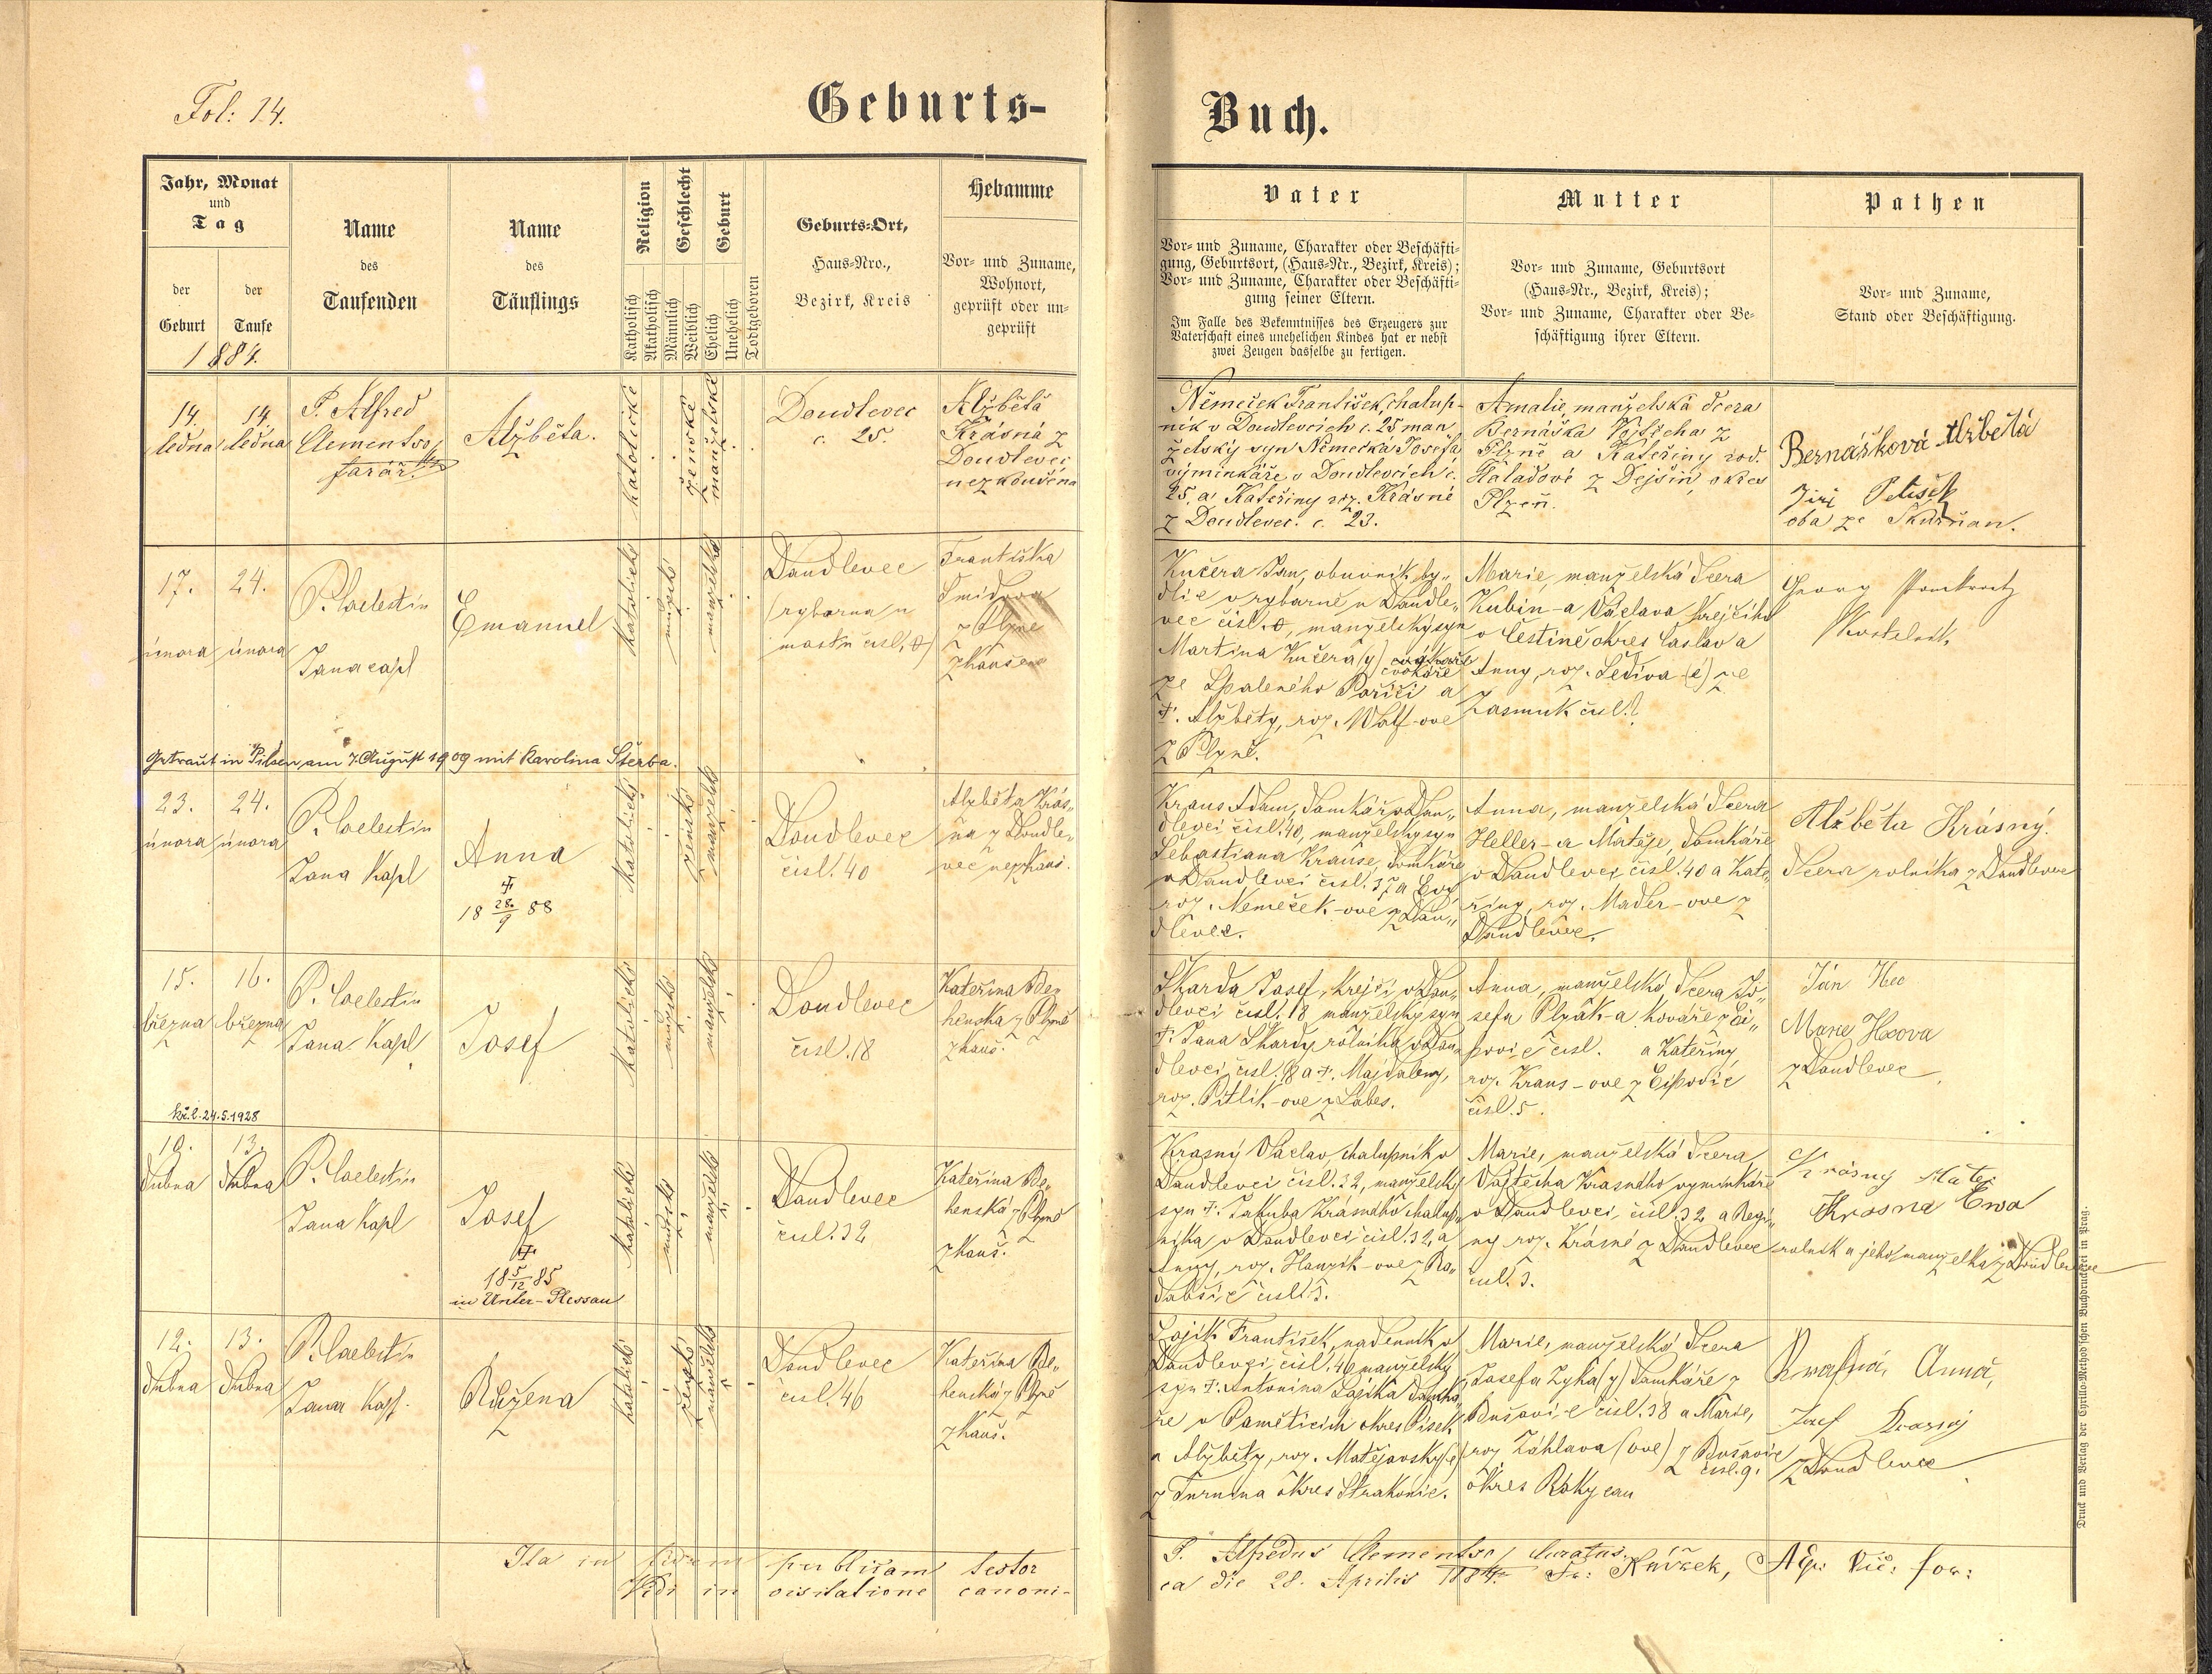 Fol: 14.
Geburts-
Buch.
Jahr, Monat
und
Tag
der
Geburt
der
Taufe
1884.
Name
des
Taufenden
Name
des
Täuflings
Religion
Katholisch
Akatholisch
Geschlecht
Männlich
Weiblich
Geburt
Ehelich
Unehelich
Todtgeboren
Geburts-Ort,
Haus-Nro.,
Bezirk, Kreis
Hebamme
Vor- und Zuname,
Wohnort,
geprüft oder un-
geprüft
Vater
Vor- und Zuname, Charakter oder Beschäfti-
gung, Geburtsort, (Haus-Nr., Bezirk, Kreis);
Vor- und Zuname, Charakter oder Beschäfti-
gung seiner Eltern.
Im Falle des Bekenntnisses des Erzeugers zur
Vaterschaft eines unehelichen Kindes hat er nebst
zwei Zeugen dasselbe zu fertigen.
Mutter
Vor- und Zuname, Geburtsort
(Haus-Nr., Bezirk, Kreis);
Vor- und Zuname, Charakter oder Be-
schäftigung ihrer Eltern.
Pathen
Vor- und Zuname,
Stand oder Beschäftigung.
14.
ledna
14.
ledna
P. Alfred
Clementso
farář.
Alžběta.
katolické
ženské
manželské
Doudlevec
č. 25.
Alžběta
Krásná z
Doudlevec
nezkoušená
Němeček František, chalup-
ník v Doudlevcích č. 25 man
želský syn Němečka Josefa
výminkáře v Doudlevcích č.
25, a Kateřiny roz. Krásné
z Doudlevec. č. 23.
Amalie, manželská dcera
Bernáška Vojtěcha z
Plzně a Kateřiny rod.
Haladové z Dejšin, okres
Plzeň.
Bernášková Alžběta
Jiří Petišek
oba ze Skurňan.
17.
února
24.
února
P. Coelestin
Jana capl
Emanuel
katolické
mužské
manželské
Doudlevec
(rybárna u
mostu čísl. 0)
Františka
Šmidova
z Plzně
zkoušená
Kučera Jan, obuvník, by„
dlíc v rybárně u Doudle„
vec čísl. 0, manželský syn
Martina Kučera(y) cvokáře
ze Spáleného Poříčí a
†. Alžběty, roz. Wolf-ove
z Plzně.
Marie, manželská dcera
Kubín-a Václava krejčího
v Čestíně okres Čáslav a
Anny, roz. Šedivá (é) ze
Zasmuk čísl.?
Georg
Kostelník
Getraut in Pilsen am 7. August 1909 mit Karolina Štěrba.
23.
února
24.
února
P. Coelestin
Jana Kapl
Anna
†
18 28/9 88
katolické
ženské
manželské
Doudlevec
čísl. 40
Alžběta Krás„
ná z Doudle„
vec nezkouš.
Kraus Adam, domkář v Dou„
dlevci čísl. 40, manželský syn
Šebastiana Krause, domkáře
v Doudlevci čísl. 37 a Evy
roz. Nemeček-ove z Dou„
dlevec.
Anna, manželská dcera
Heller-a Matěje, domkáře
v Doudlevci čísl. 40 a Kate„
řiny, roz. Mader-ove z
Doudlevec.
Alžběta Krásný.
dcera rolníka z Doudlevec
15.
března
16.
března
P. Coelestin
Jana Kapl
Josef
katolické
mužské
manželské
Doudlevec
čísl. 18
Kateřina Be„
henská z Plzně
zkouš.
Škarda Josef, krejčí v Dou„
dlevci čísl. 18 manželský syn
†. Jana Škardy rolníka v Dou„
dlevci, čísl. 18 a †. Majdaleny,
roz. Pitlik-ove z Lábes.
Anna, manželská dcera Jo„
sefa Plzák-a kováře z Či„
povic čísl. a Kateřiny,
roz. Kraus-ove z Čipovic
čísl. 5.
Ján Hec
Marie Hcova
z Doudlevec
24.5.1928
10.
dubna
13.
dubna
P. Coelestin
Jana Kapl
Josef
†
18 5/12 85
in Unter-Plessau
katolické
mužské
manželské
Doudlevec
čísl. 32
Kateřina Be„
henská z Plzně
zkouš.
Krasný Václav chalupník v
Doudlevci čísl. 32, manželský
syn †. Jakuba Krásného chalup„
níka v Doudlevci čísl. 32 a
Anny, roz. Hanzík-ove z Ro„
čísl. 3.
Marie, manželská dcera
Vojtěcha Krásného výminkáře
v Doudlevci, čísl. 32 a Regi„
ny roz. Krásné z Doudlevec
čísl. 3.
Krásny Matej
Krasna Ewa
rolník a jeho manželka z Doudlevec
12.
dubna
13.
dubna
P. Coelestin
Jana Kapl.
Růžena
katolické
ženské
manželské
Doudlevec
čísl. 46
Kateřina Be„
henská z Plzně
zkouš.
Zajík František, nádenník v
Doudlevci, čísl. 46 manželský
syn †. Antonina Zajíka domká„
ře v Pamětících okres Písek
a Alžběty, roz. Matějovsky(é)
z Turnina okres Strakonic.
Marie, manželská dcera
Josefa Zyka(y) domkáře z
Bušovic čísl. 38 a Marie,
roz Záhlava (ove) z Bušovic
čísl. 9.
okres Rokycan
Anna,
Josef Krasný
z Doudlevec
Ita in fidem publicam testor
P. Alfredus Clementso, Curatus.
Vidi in visitatione canoni-
ca die 28. Aprilis 1884. Fr: Růžek, Aep: Vic: for:
Druck und Verlag der Cyrillo-Method'schen Buchdruckerei in Prag.